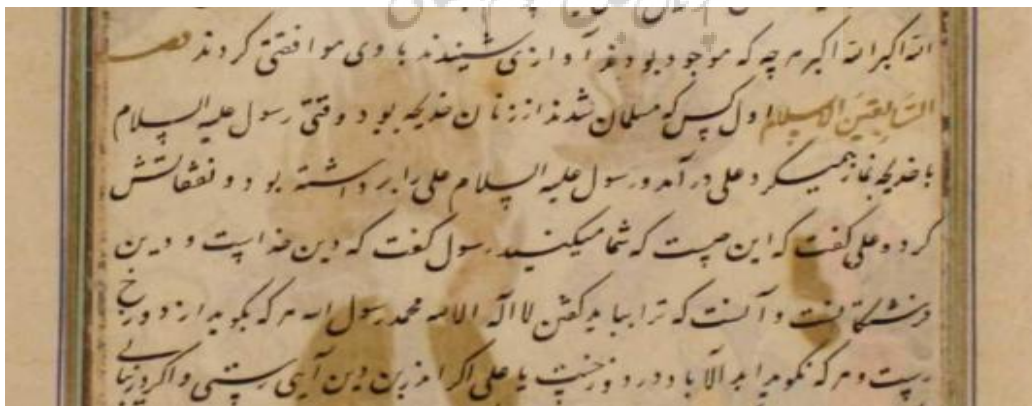 الله اکبر الله اکبر هر چه که موجود بودند آواز می شنیدند با وی موافقتی کردند قصه
السابقین الاسلام اول کس که مسلمان شدند از زنان خدیجه بود و قتی رسول علیه السلام
با خدیجه نماز همیکرد علی در آمد و رسول علیه السلام علی را بر داشته بود و نفقاتش
کرد و علی کفت که این چیست که شما میکنید رسول کفت که دین خدایست و دین
فرشتکانست و آنست که ترا بباید کفتن لا اله الا الله محمد رسول الله هر که بکوید از دوزخ
رست و هر که نکوید ابد الاباد در دوزخست یا علی اکر اندرین دین آیی رستی و اکر